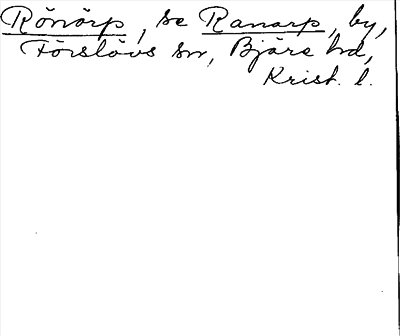 Rönörp, se Ranarp, by,
Förslövs sn, Bjäre hd,
Krist. l.